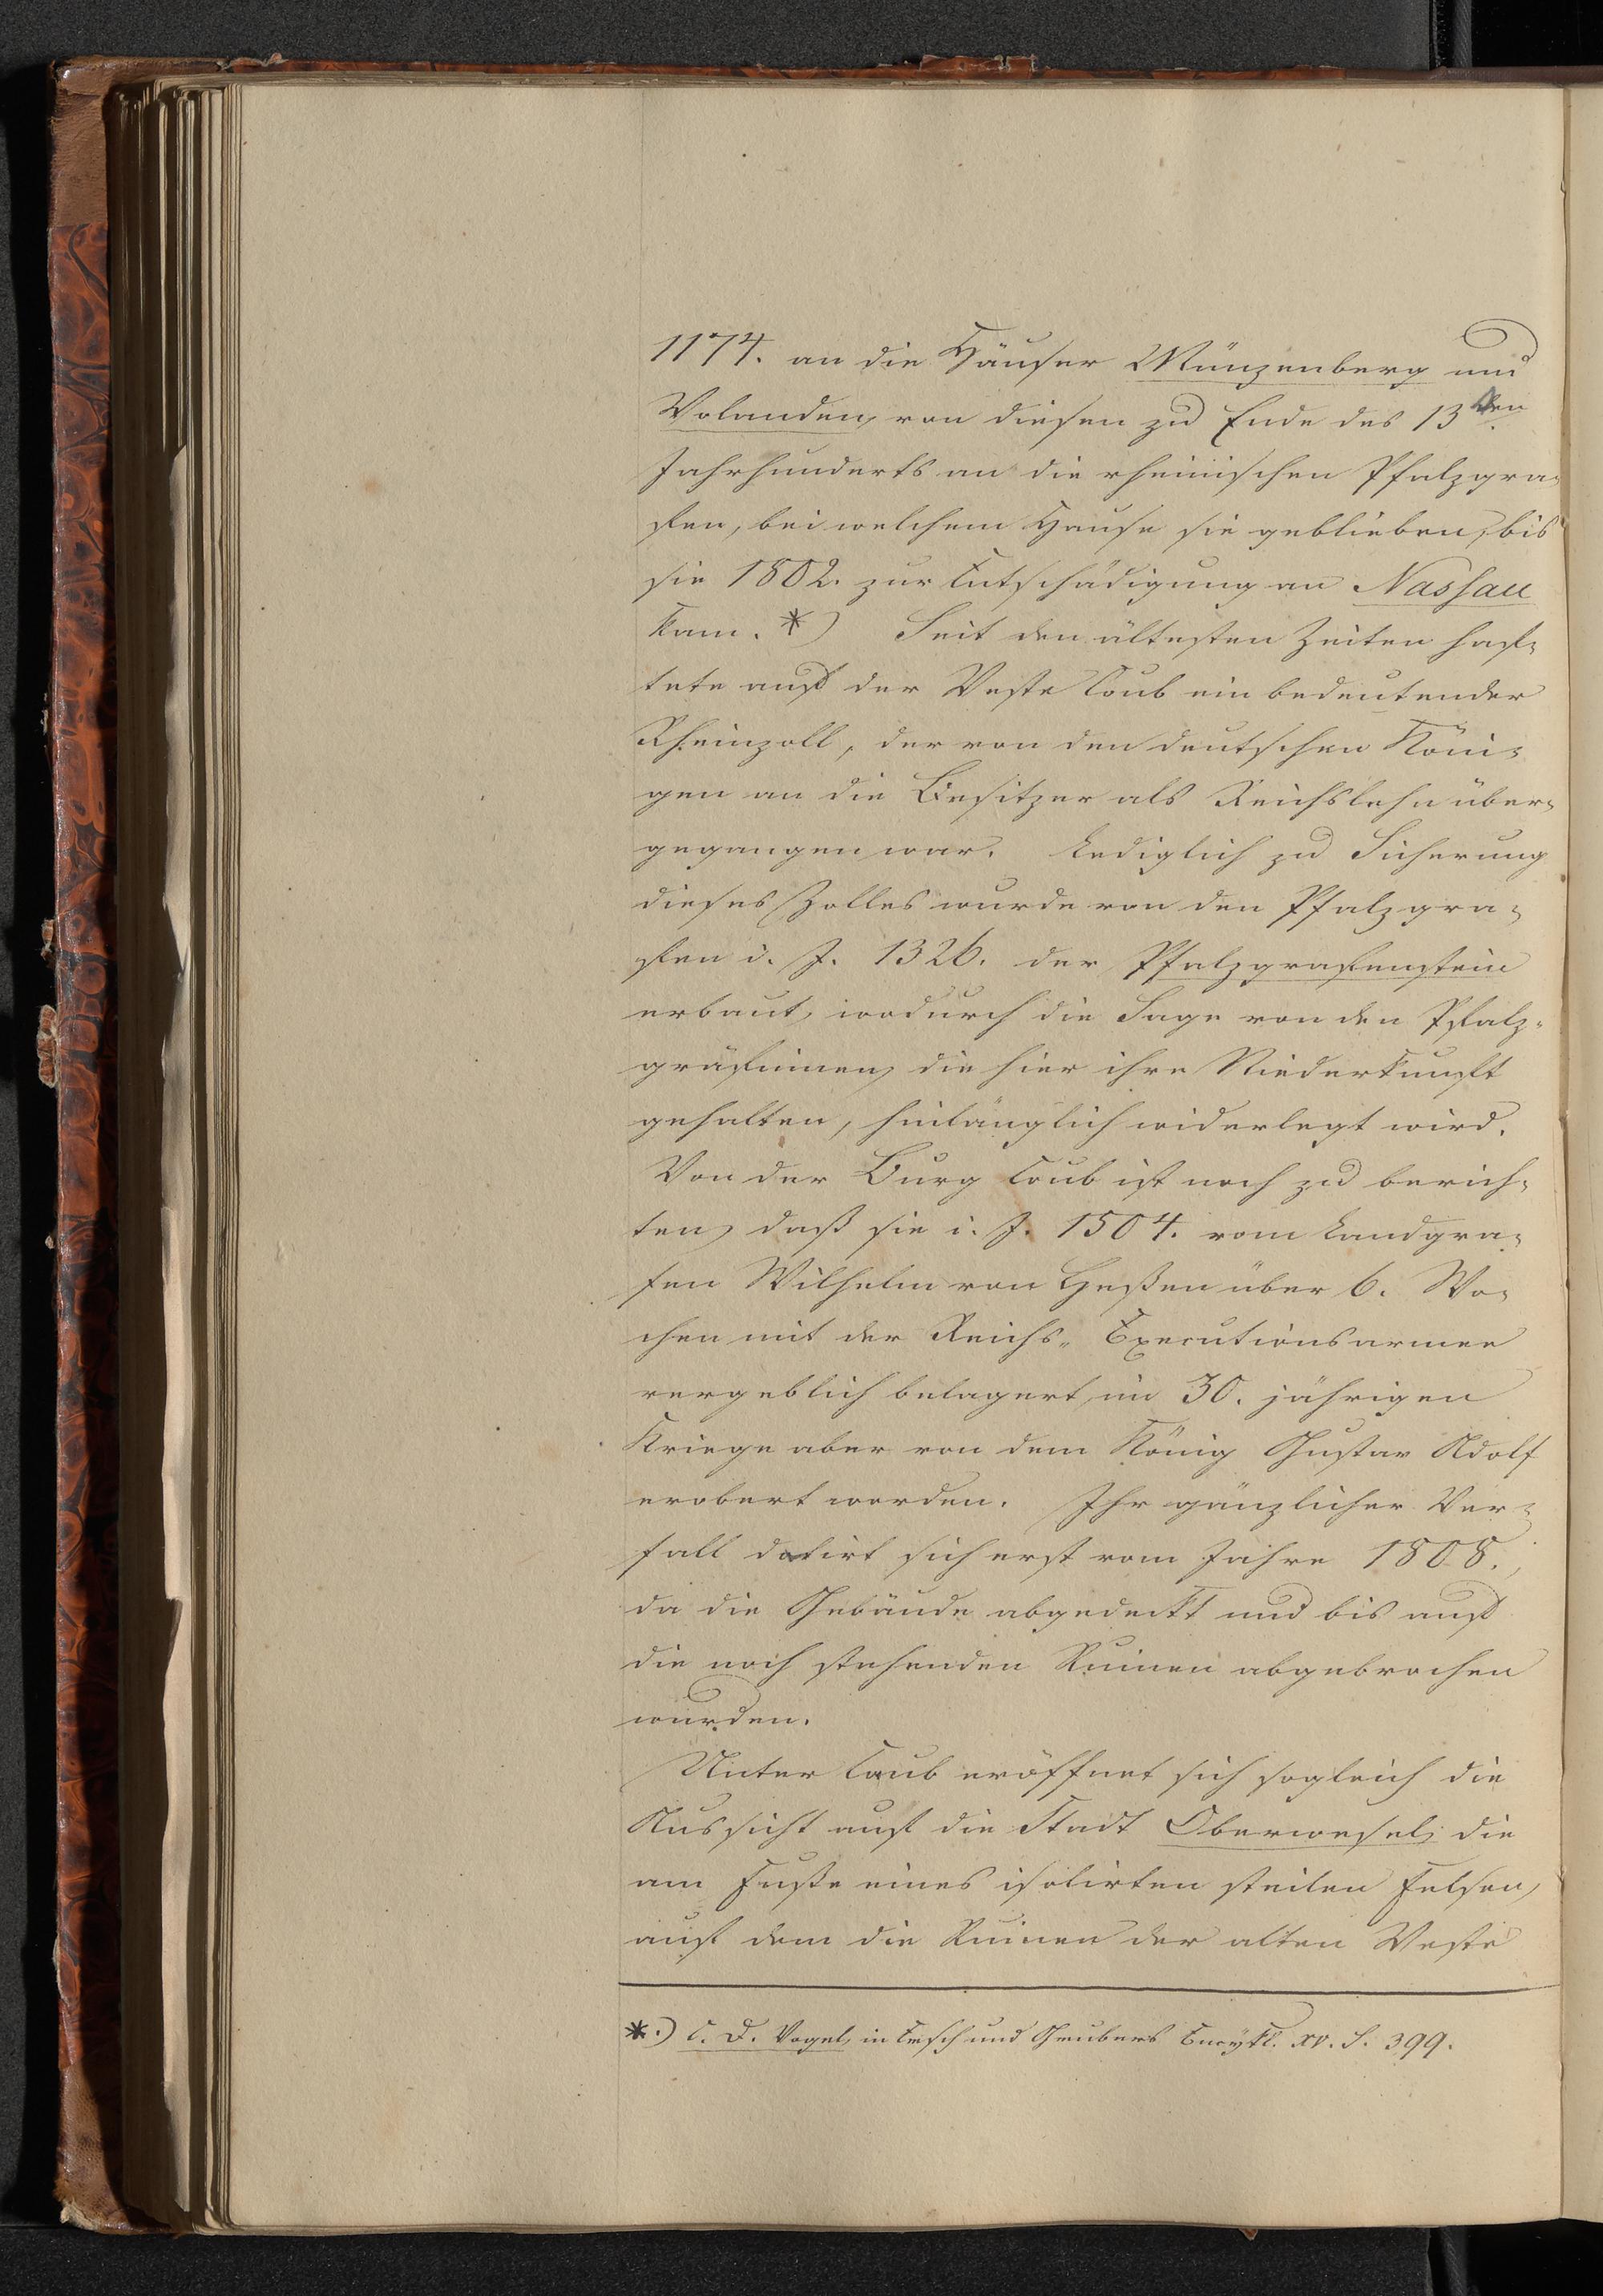 1174. an die Häuser Münzenberg und
Bolanden, von diesen zu Ende des 13ten.
Jahrhunderts an die rheinischen Pfalzgra-
fen, bei welchem Hause sie geblieben, bis
sie 1802. zur Entschädigung an Nassau
kam. *) Seit den ältesten Zeiten haf-
tete auf der Veste Caub ein bedeutender
Rheinzoll, der von den deutschen Köni-
gen an die Besitzer als Reichslehn über-
gegangen war. Lediglich zu Sicherung
dieses Zolles wurde von den Pfalzgra-
fen i. J. 1326. der Pfalzgrafenstein
erbaut, wodurch die Sage von den Pfalz-
gräfinnen, die hier ihre Niederkunft
gehalten, hinlänglich widerlegt wird.
Von der Burg Caub ist noch zu berich-
ten, daß sie i. J. 1504. vom Landgra-
fen Wilhelm von Heßen über 6. Wo-
chen mit der Reichs- Executionsarmee
vergeblich belagert, im 30. jährigen
Kriege aber von dem König Gustav Adolf
erobert worden. Ihr gänzlicher Ver-
fall datirt sich erst vom Jahre 1808.,
da die Gebäude abgedeckt und bis auf
die noch stehenden Ruinen abgebrochen
wurden.
Unter Caub eröffnet sich sogleich die
Aussicht auf die Stadt Oberwesel, die
am Fuße eines isolirten steilen Felsen,
auf dem die Ruinen der alten Veste
*.) C. D. Vogel, in Ersch und Grubers Encykl. XV. S. 399.